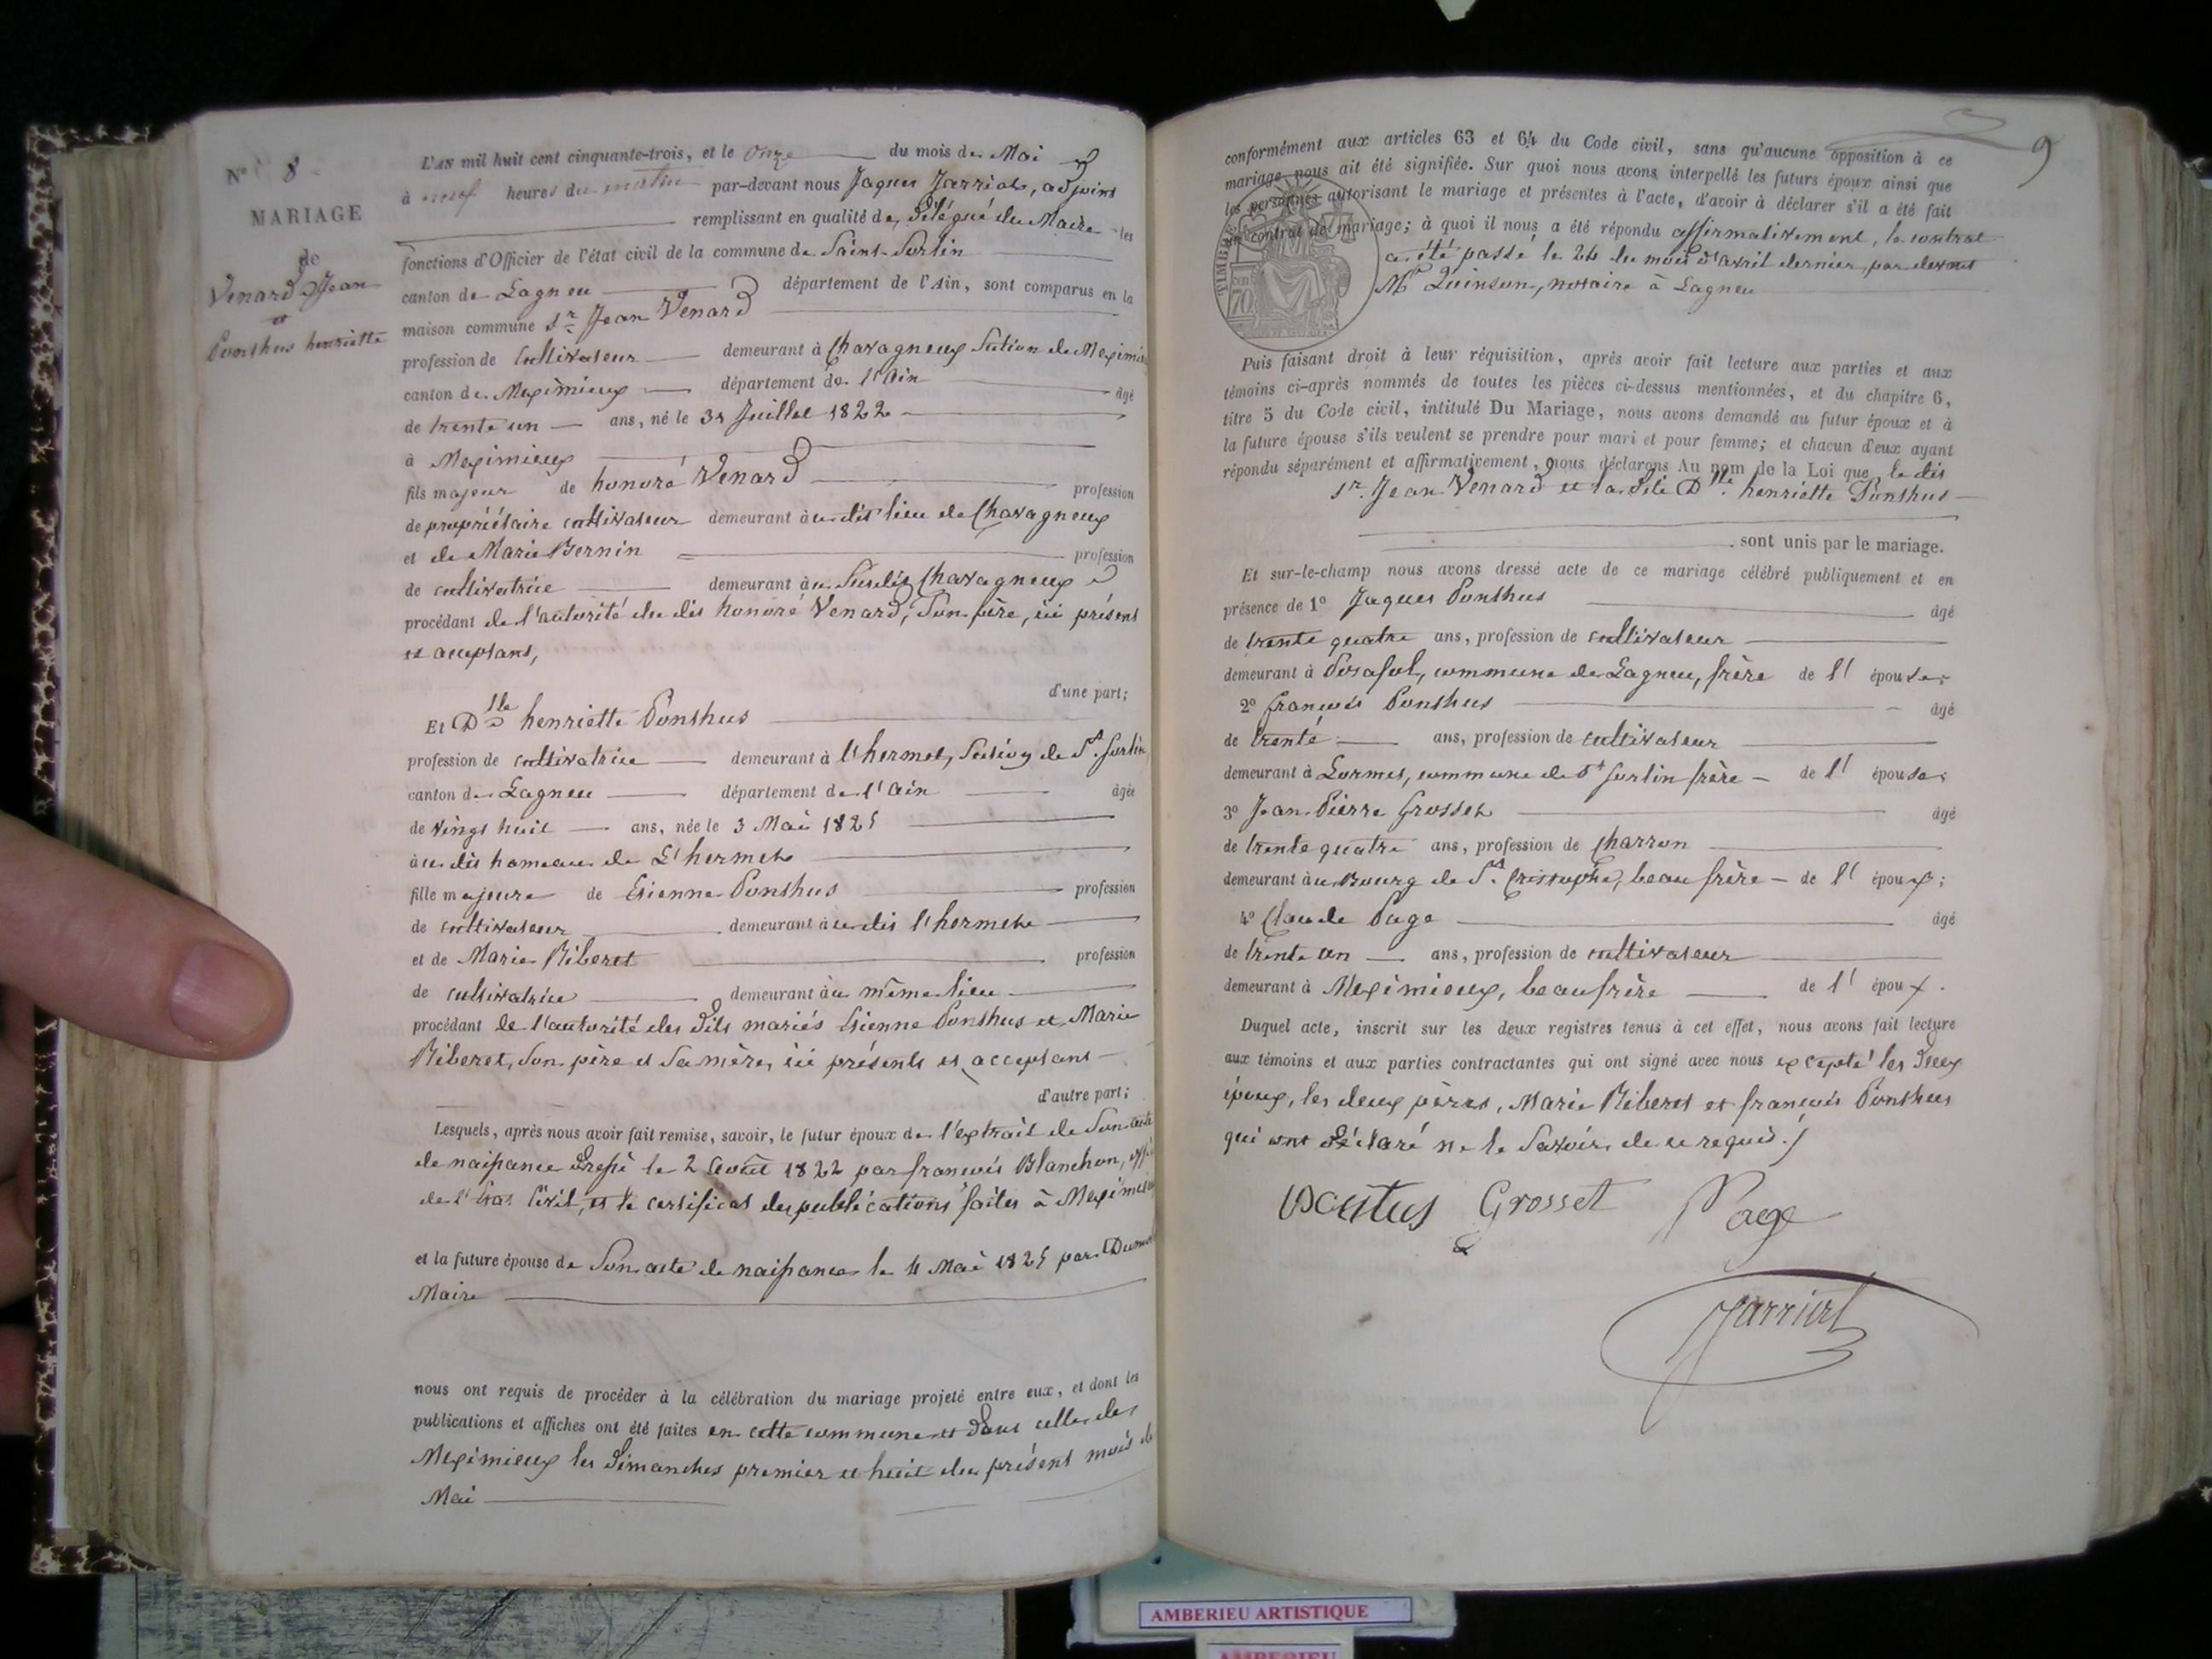 N° 8
MARIAGE
de
Venard Jean
et
Ponthus henriette
L'AN mil huit cent cinquante-trois, et le onze du mois de Mai
à neuf heures du matin par-devant nous Jaques Jarriat, adjoint
remplissant en qualité de délégué du Maire les
fonctions d'Officier de l'état civil de la commune de Saint-Sorlin
canton de Lagneu département de l'Ain, sont comparus en la
maison commune Sr Jean Venard
profession de Cultivateur demeurant à Chavagneux Section de Meximieux
canton de Meximieux département de l'Ain âgé
de trente un ans, né le 31 Juillet 1822
à Meximieux
fils majeur de honoré Venard profession
de propriétaire cultivateur demeurant au dit lieu de Chavagneux
et de Marie Bernin profession
de cultivatrice demeurant au Susdit Chavagneux
procédant de l'autorité du dit honoré Venard, Son père, ici présent
et acceptant,
d'une part;
Et Dlle henriette Ponthus
profession de cultivatrice demeurant à l'hermet, Section de St. Sorlin
canton de Lagneu département de l'Ain âgée
de vingt huit ans, née le 3 Mai 1825
au dit hameau de L'hermet
fille majeure de Etienne Ponthus profession
de cultivateur demeurant au dit l'hermet
et de Marie Riberet profession
de cultivatrice demeurant au même lieu
procédant de l'autorité des dits mariés Etienne Ponthus et Marie
Riberet, Son père et Sa mère, ici présents et acceptant
d'autre part;
Lesquels, après nous avoir fait remise, savoir, le futur époux de l'extrait de Son acte
de naissance dressé le 2 Août 1822 par françois Blanchon,
de l'Etat Civil, et le certificat des publications faites à Meximieux
et la future épouse de Son acte de naissance le 4 Mai 1825 par
Maire
nous ont requis de procéder à la célébration du mariage projeté entre eux, et dont les
publications et affiches ont été faites en cette commune et dans celle de
Meximieux les Dimanches premier et huit du présent mois de
Mai
9
conformément aux articles 63 et 64 du Code civil, sans qu'aucune opposition à ce
mariage nous ait été signifiée. Sur quoi nous avons interpellé les futurs époux ainsi que
les personnes autorisant le mariage et présentes à l'acte, d'avoir à déclarer s'il a été fait
un contrat de mariage; à quoi il nous a été répondu affirmativement, le contrat
a été passé le 24 du mois d'avril dernier par devant
Me Quinson, notaire à Lagneu
TIMBRE
70
Puis faisant droit à leur réquisition, après avoir fait lecture aux parties et aux
témoins ci-après nommés de toutes les pièces ci-dessus mentionnées, et du chapitre 6,
titre 5 du Code civil, intitulé Du Mariage, nous avons demandé au futur époux et à
la future épouse s'ils veulent se prendre pour mari et pour femme; et chacun d'eux ayant
répondu séparément et affirmativement, nous déclarons Au nom de la Loi que le dit
Sr. Jean Venard et la dite Dlle. henriette Ponthus
sont unis par le mariage.
Et sur-le-champ nous avons dressé acte de ce mariage célébré publiquement et en
présence de 1° Jaques Ponthus âgé
de trente quatre ans, profession de cultivateur
demeurant à Posafol, commune de Lagneu, frère de l'épouse;
2° françois Ponthus âgé
de trente ans, profession de cultivateur
demeurant à Lormet, commune de St Sorlin frère de l'épouse;
3° Jean Pierre Grosset âgé
de trente quatre ans, profession de Charron
demeurant au Bourg de St. Cristophe, beau frère de l'époux;
4° Claude Page âgé
de trente un ans, profession de cultivateur
demeurant à Meximieux, beaufrère de l'époux.
Duquel acte, inscrit sur les deux registres tenus à cet effet, nous avons fait lecture
aux témoins et aux parties contractantes qui ont signé avec nous excepté les deux
époux, les deux pères, Marie Riberet et françois Ponthus
qui ont déclaré ne le Savoir de ce requis./
Grosset Page
Jarriat
AMBERIEU ARTISTIQUE
AMBERIEU